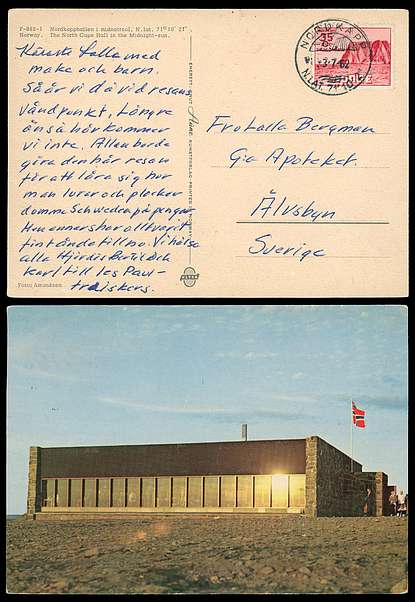 F-862-1 Nordkapphallen i midnattsol, N.lat. 71°10' 21"
Norway. The North Cape Hall in the Midnight-sun.
Käraste Lalla med
make och barn.
Så är vi då vid resans
vändpunkt, Längre
än så här kommer
vi inte. Alla borde
göra den här resan
för att lära sig hur
man lurar och plockar
domma Svenskar på pengar.
Hur annars har allt varit
fint ända till nu. Vi hälsa
alla Hjördis Bertil och
Karl till les Paul-
Foto: Amundsen
ENERETT
KUNSTFORLAG
NORDKAPP
-3-7-62
N.LAT. 71°10'21"
35
Fru Lalla Bergman
Apoteket.
Älvsbyn
Sverige